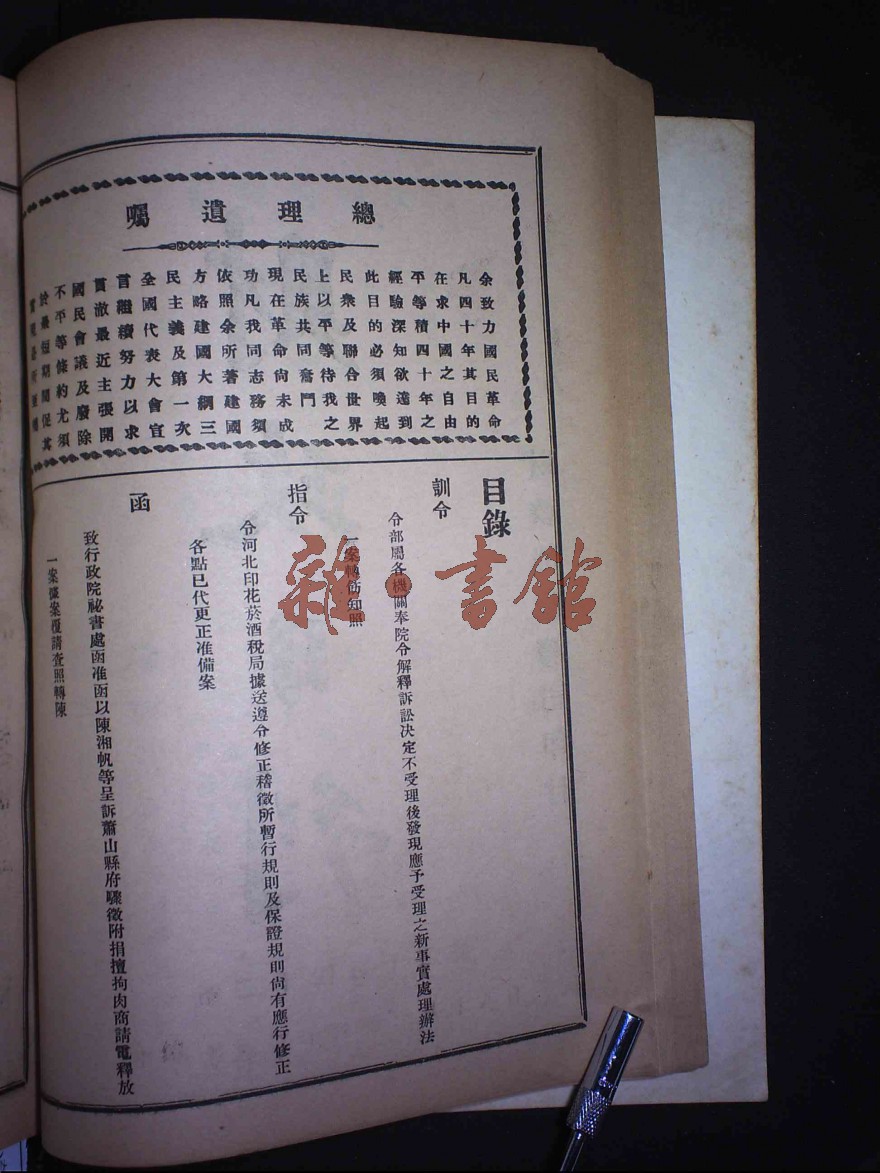 總理遺囑
余致力國民革命
凡四十年其目的
在求中國之自由
平等積四十年之
經驗深知欲達到
此目的必須喚起
民衆及聯合世界
上以平等待我之
民族共同奮鬥
現在革命尙未成
功凡我同志務須
依照余所著建國
方略建國大綱三
民主義及第一次
全國代表大會宣
言繼續努力以求
貫澈最近主張開
國民會議及廢除
不平等條約尤須
於最短期間促其
目錄
訓令
令部屬各機關奉院令解釋訴訟決定不受理後發現應予受理之新事實處理辦法
一案轉飭知照
指令
令河北印花菸酒稅局據送遵令修正稽徵所暫行規則及保證規則尙有應行修正
各點已代更正准備案
函
致行政院祕書處函准函以陳湘帆等呈訴蕭山縣府驟徵附捐擅拘肉商請電釋放
一案據案復請查照轉陳
雜·書館